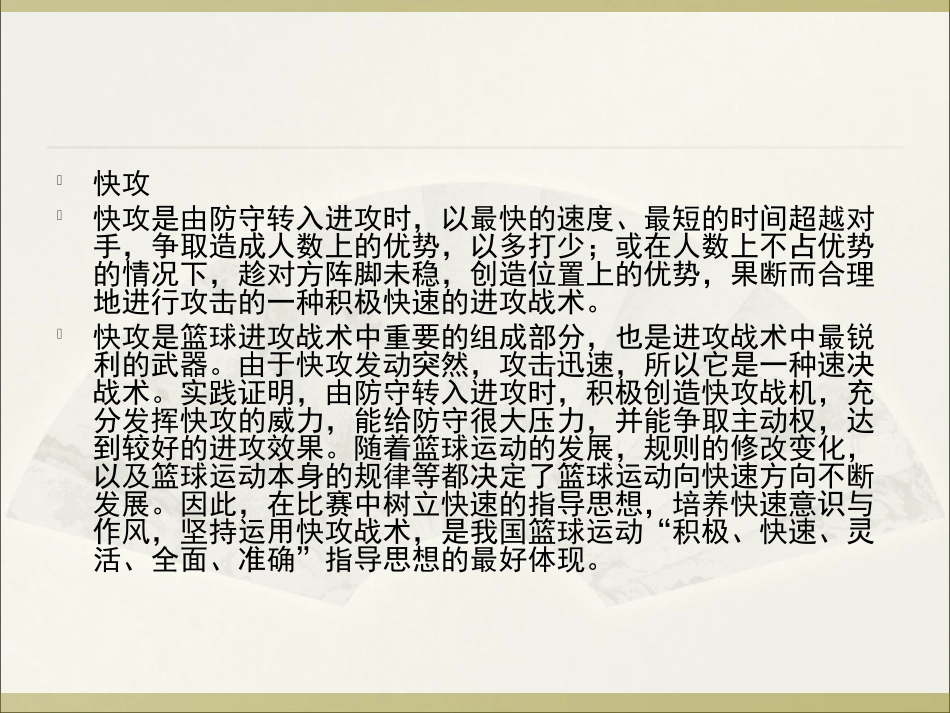 快攻
快攻是由防守转入进攻时，以最快的速度、最短的时间超越对
手，争取造成人数上的优势，以多打少；或在人数上不占优势
的情况下，趁对方阵脚未稳，创造位置上的优势，果断而合理
地进行攻击的一种积极快速的进攻战术。
快攻是篮球进攻战术中重要的组成部分，也是进攻战术中最锐
利的武器。由于快攻发动突然，攻击迅速，所以它是一种速决
战术。实践证明，由防守转入进攻时，积极创造快攻战机，充
分发挥快攻的威力，能给防守很大压力，并能争取主动权，达
到较好的进攻效果。随着篮球运动的发展，规则的修改变化，
以及篮球运动本身的规律等都决定了篮球运动向快速方向不断
发展。因此，在比赛中树立快速的指导思想，培养快速意识与
作风，坚持运用快攻战术，是我国篮球运动“积极、快速、灵
活、全面、准确”指导思想的最好体现。